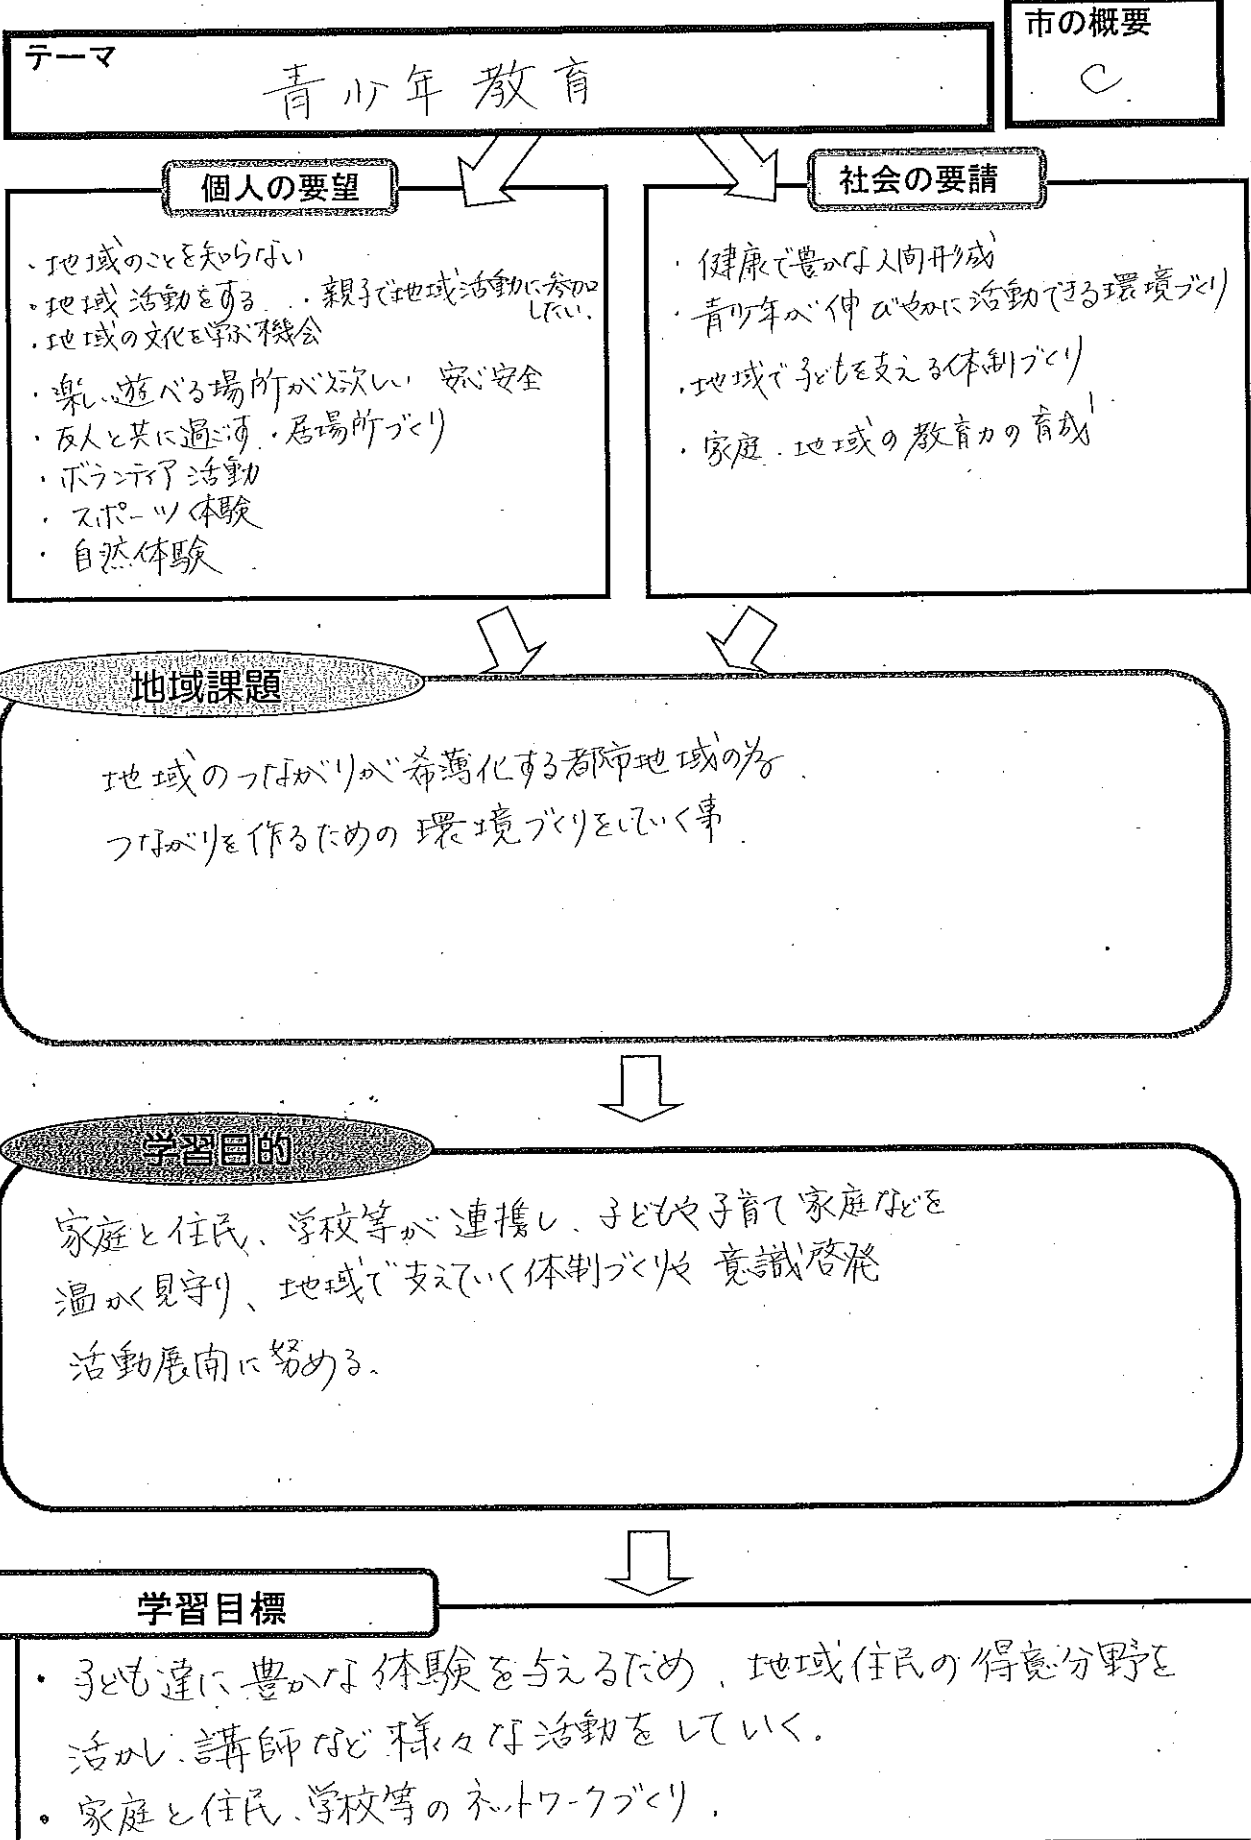 テーマ
青少年教育
市の概要
C
個人の要望
・地域のことを知らない
・地域活動をする ・親子で地域活動に参加したい、
・地域の文化を学ぶ機会
・楽しい遊べる場所が欲しい 安心安全
・友人と共に過ごす・居場所づくり
・ボランティア活動
・スポーツ体験
・自然体験
社会の要請
・健康で豊かな人間形成
・青少年が伸びやかに活動できる環境づくり
・地域で子どもを支える体制づくり
・家庭・地域の教育力の育成
地域課題
地域のつながりが希薄化する都市地域の為
つながりを作るための環境づくりをしていく事
学習目的
家庭と住民、学校等が連携し、子どもや子育て家庭などを
温かく見守り、地域で支えていく体制づくりや意識啓発
活動展開に努める、
学習目標
・子ども達に豊かな体験を与えるため、地域住民の得意分野を
活かし、講師など様々な活動をしていく.
・家庭と住民、学校等のネットワークづくり.